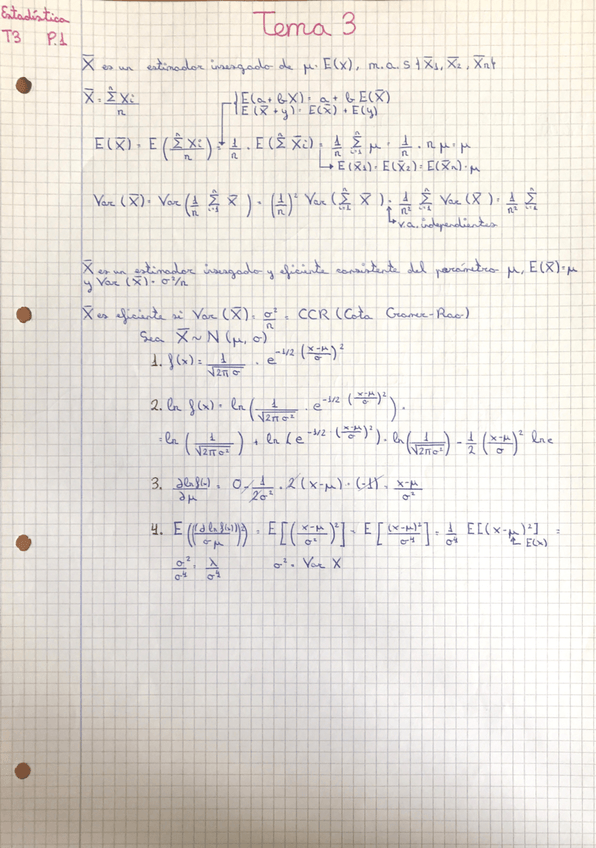 Estadística
T3 P.1
Tema 3
X̄ es un estimador insesgado de μ. E(x), m.a.s {X̄₁, X̄₂, X̄ₙ}
X̄ = Σⁿ Xi / n
E(a + bX) = a + b E(X̄)
E(X̄ + y) = E(X̄) + E(y)
E(X̄) = E(Σⁿ Xi / n) = 1/n . E(Σⁿ X̄i) = 1/n Σⁿᵢ₌₁ μ = 1/n . n μ = μ
E(X̄₁) = E(X̄₂) = E(X̄ₙ) = μ
Var(X̄) = Var(1/n Σⁿᵢ₌₁ X̄) = (1/n)² Var(Σⁿᵢ₌₁ X̄) = 1/n² Σⁿᵢ₌₁ Var(X̄) = 1/n² Σⁿᵢ₌₁
v.a. independientes
X̄ es un estimador insesgado y eficiente consistente del parámetro μ, E(X̄) = μ
y Var(X̄) = σ²/n
X̄ es eficiente si Var(X̄) = σ²/n = CCR (Cota Cramer-Rao)
Sea X̄ ~ N(μ, σ)
1. f(x) = 1/√2πσ . e^-1/2 (x-μ/σ)²
2. ln f(x) = ln(1/√2πσ² . e^-1/2 (x-μ/σ)²) =
= ln(1/√2πσ²) + ln(e^-1/2 (x-μ/σ)²) = ln(1/√2πσ²) - 1/2 (x-μ/σ)² ln e
3. ∂ln f(x)/∂μ = 0 - 1/2σ² . 2(x-μ) . (-1) = x-μ/σ²
4. E(((∂ln f(x))/σμ)²) = E[(x-μ/σ²)²] = E[(x-μ)²/σ⁴] = 1/σ⁴ E[(x-μ)²] =
E(x)
σ²/σ⁴ = 1/σ² σ² = Var X